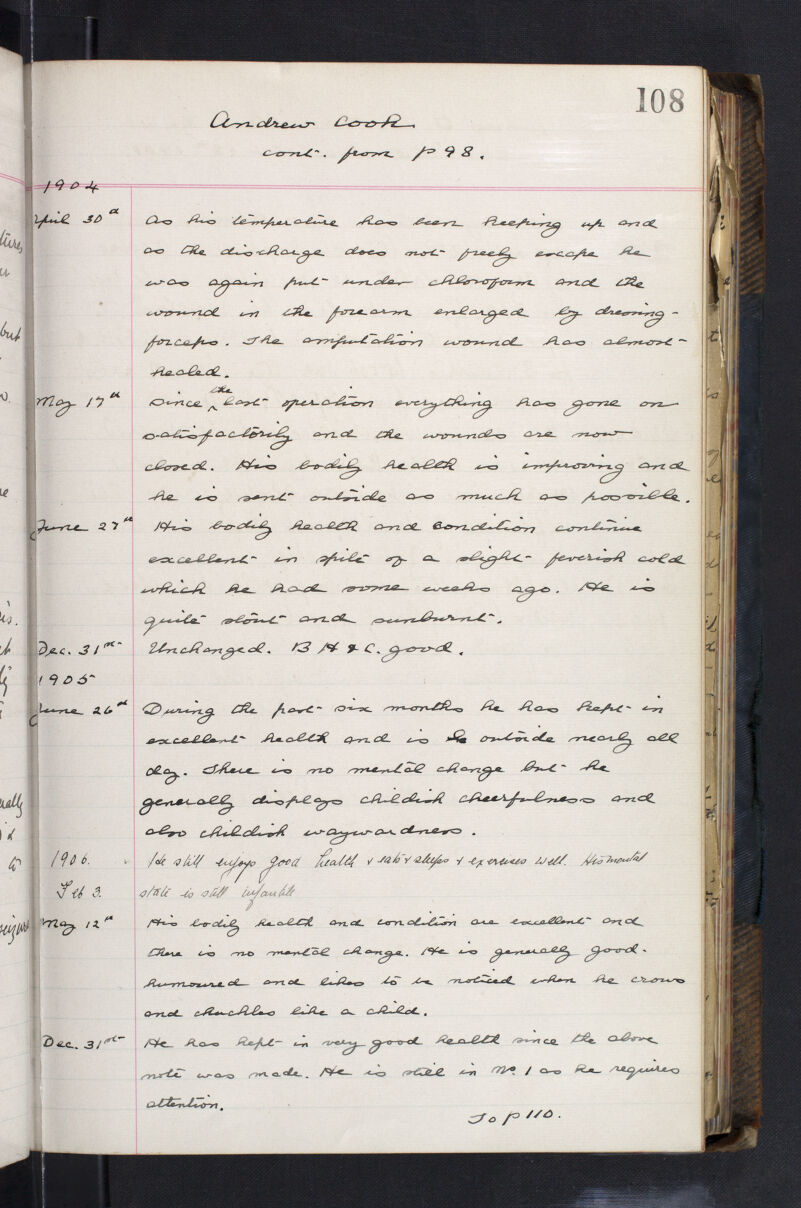 108
Andrew Cook
cont. from p 98.
1904
April 30th As his temperature has been keeping up and
as the discharge does not freely escape he
was again put under chloroform and the
wound in the forearm enlarged by dressing-
forceps. The amputation wound has almost
healed.
May 17th Since the last operation everything has gone on
satisfactorily and the wounds are now
closed. His bodily health is improving and
he is sent outside as much as possible.
June 27th His bodily health and condition continue
excellent in spite of a slight feverish cold
which he had some weeks ago. He is
quite stout and sunburnt.
Dec. 31st Unchanged. B H & C. good.
1905
June 26th During the past six months he has kept in
excellent health and is outside nearly all
day. There is no mental change but he
generally displays childish cheerfulness and
also childish waywardness.
1906. He still enjoys good health & eats & sleeps & exercises well. His mental
Feb 3. state is still infantile
May 12th His bodily health and condition are excellent and
there is no mental change. He is generally good-
humoured and likes to be noticed when he crows
and chuckles like a child.
Dec. 31st He has kept in very good health since the above
note was made. He is still in No. 1 as he requires
attention.
To p 110.